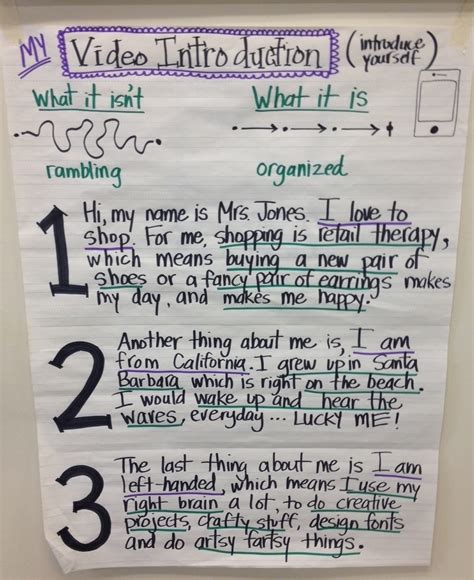 MY Video Introduction (introduce yourself)
What it isn't What it is
rambling organized
1 Hi, my name is Mrs. Jones. I love to
shop. For me, shopping is retail therapy,
which means buying a new pair of
shoes or a fancy pair of earrings makes
my day, and makes me happy.
2 Another thing about me is, I am
from California. I grew up in Santa
Barbara which is right on the beach.
I would wake up and hear the
waves, everyday... LUCKY ME!
3 The last thing about me is I am
left-handed, which means I use my
right brain a lot, to do creative
projects, crafty stuff, design fonts
and do artsy fartsy things.